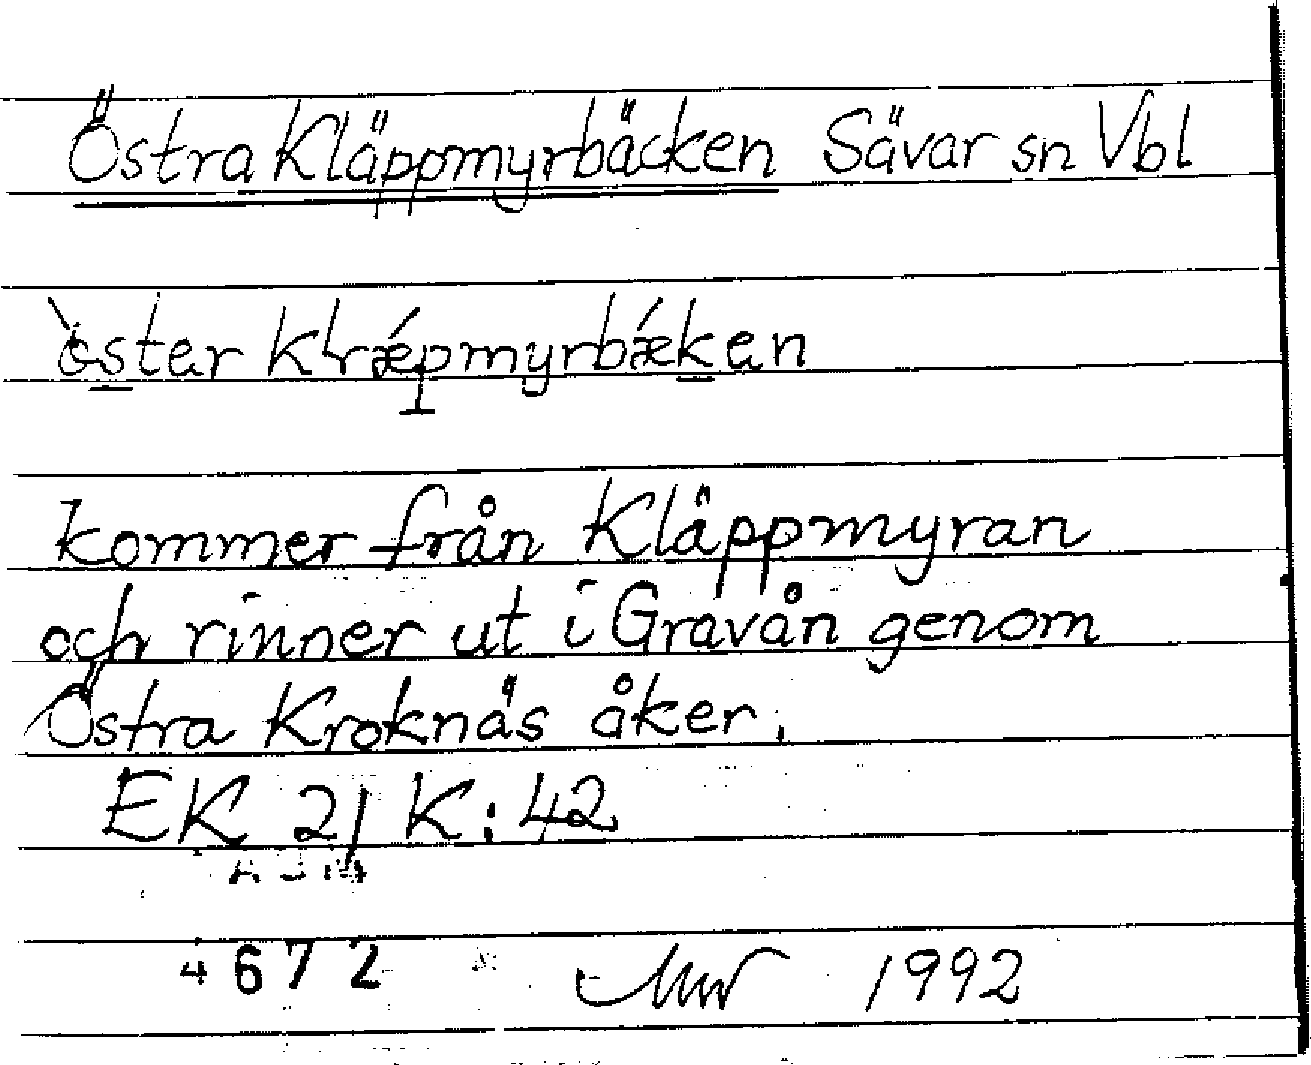 Östra Kläppmyrbäcken Sävar sn Vbl
kommer från Kläppmyran
och rinner ut i Gravån genom
Östra Kroknäs åker.
EK 21 K:42
4672 1992